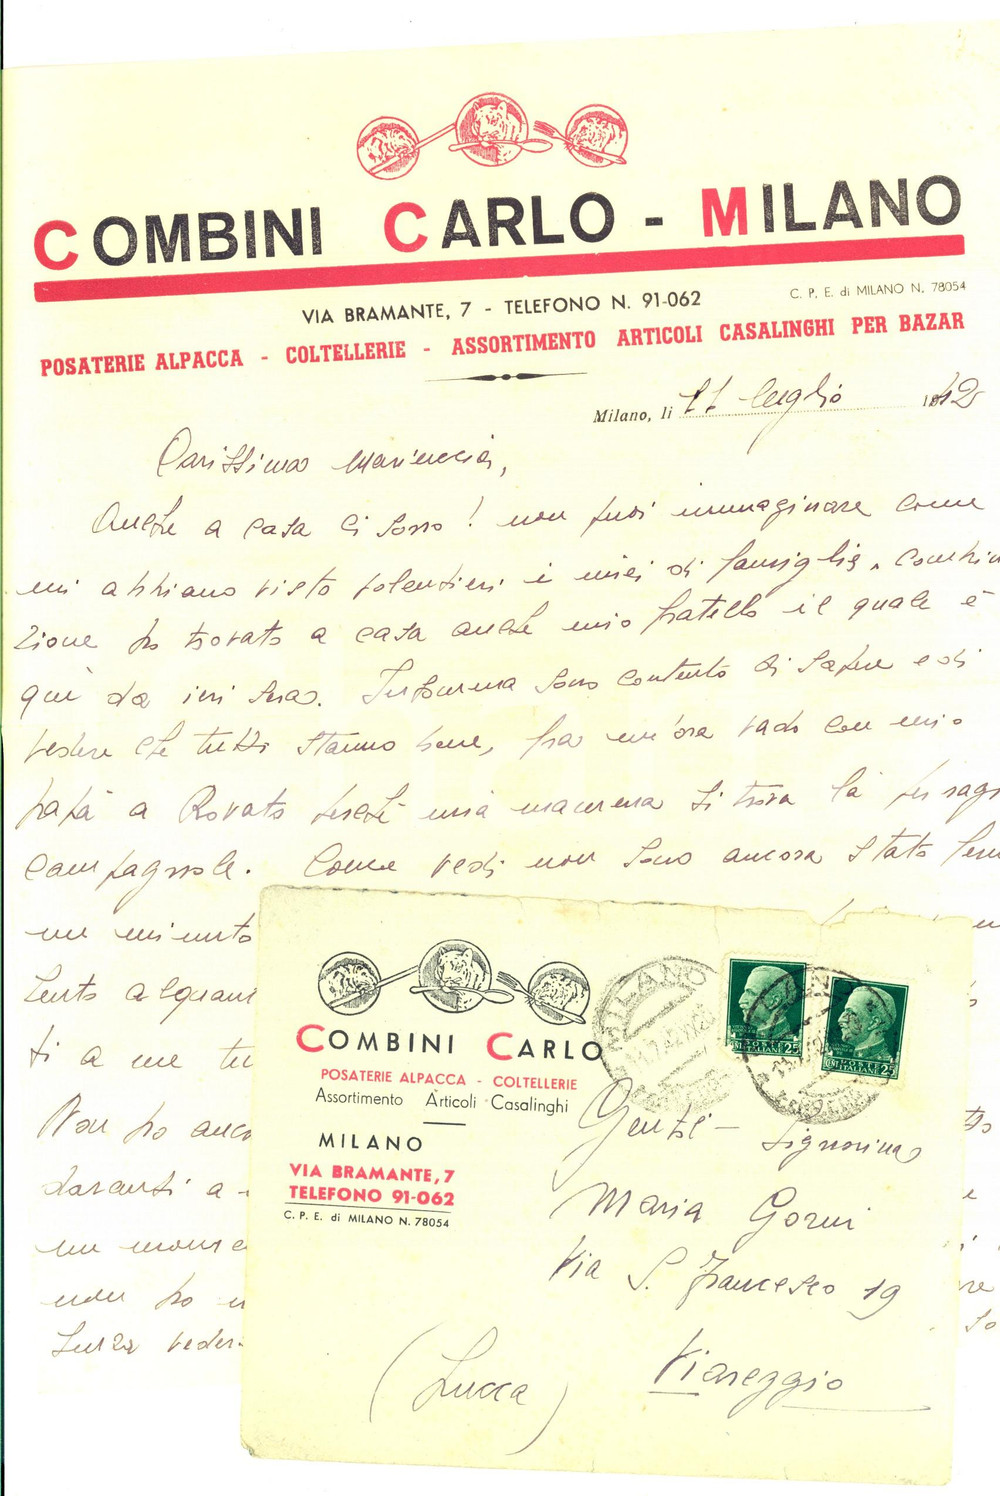 COMBINI CARLO - MILANO
VIA BRAMANTE, 7 - TELEFONO N. 91-062
C. P. E. di MILANO N. 78054
POSATERIE ALPACCA - COLTELLERIE - ASSORTIMENTO ARTICOLI CASALINGHI PER BAZAR
Milano, li 11 luglio 1942
Carissima Mariuccia,
Anche a casa ci sono! non puoi immaginare come
mi abbiano visto volentieri i miei di famiglia. Combin
zione ho trovato a casa anche mio fratello il quale è
qui da ieri sera. Insomma sono contento di sapere e di
vedere che tutti stanno bene, fra un'ora vado con mio
papà a Rovato perchè mia mamma si trova là per
campagnole. Come vedi non sono ancora stato
un minuto
alquan
ti a me tu
Non ho anco
davanti a
un mome
non ho
senza veder
COMBINI CARLO
POSATERIE ALPACCA - COLTELLERIE
Assortimento Articoli Casalinghi
MILANO
VIA BRAMANTE, 7
TELEFONO 91-062
C. P. E. di MILANO N. 78054
MILANO
POSTE ITALIANE
CENT. 25
POSTE ITALIANE
CENT. 25
Gentil - Signorina
Maria Gorni
Via S. Francesco 19
Viareggio
(Lucca)